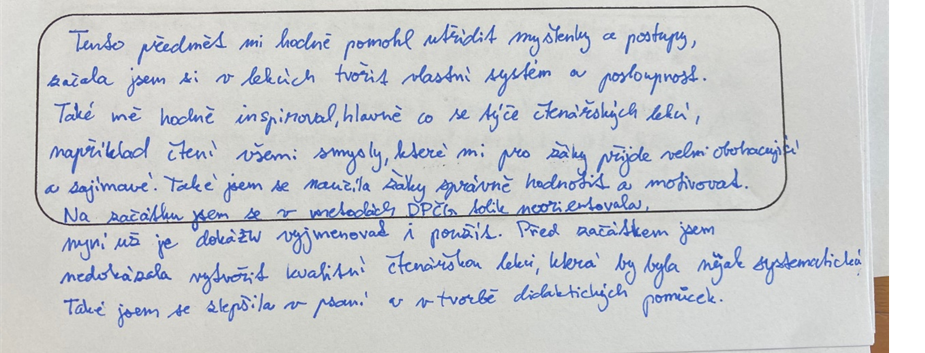 Tento předmět mi hodně pomohl utřídit myšlenky a postupy,
začala jsem si v lekcích tvořit vlastní systém a posloupnost.
Také mě hodně inspiroval, hlavně co se týče čtenářských lekcí,
například čtení všemi smysly, které mi pro žáky přijde velmi obohacující
a zajímavé. Také jsem se naučila žáky správně hodnotit a motivovat.
Na začátku jsem se v metodách DPČG tolik neorientovala,
nyní už je dokážu vyjmenovat i použít. Před začátkem jsem
nedokázala vytvořit kvalitní čtenářskou lekci, která by byla nějak systematická
Také jsem se zlepšila v psaní a v tvorbě didaktických pomůcek.